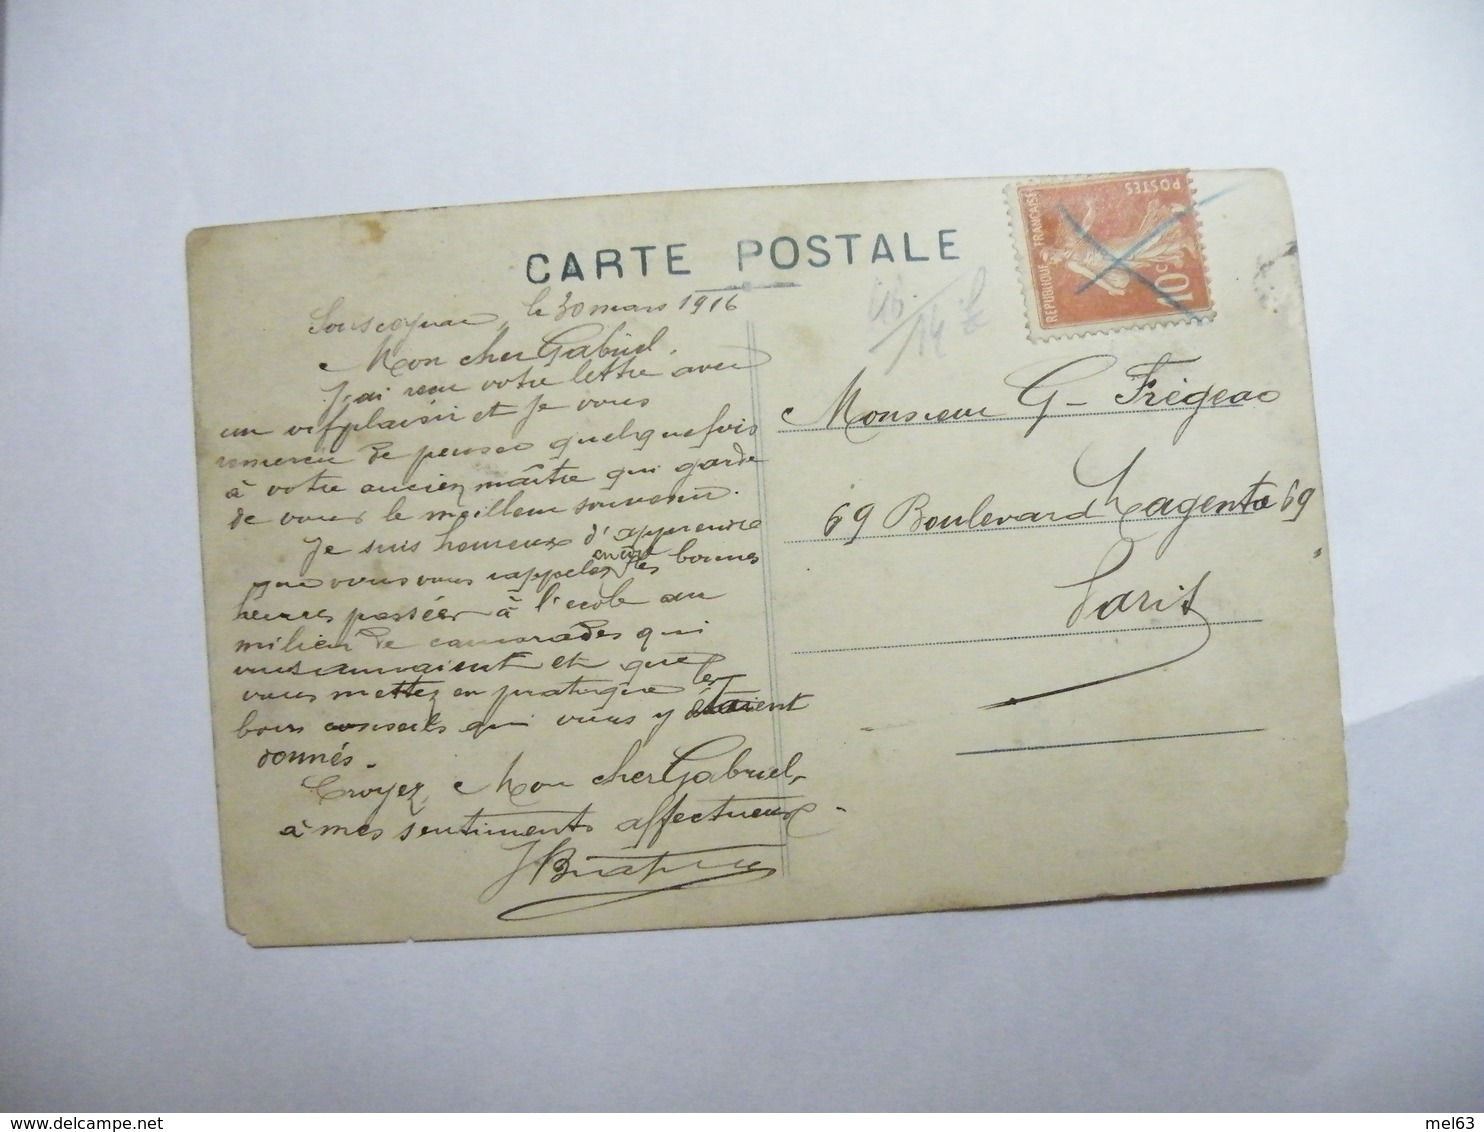 CARTE POSTALE
Sousceyrac, le 30 mars 1916
Mon cher Gabriel,
J'ai reçu votre lettre avec
un vif plaisir et je vous
remercie de penser quelquefois
à votre ancien maître qui garde
de vous le meilleur souvenir.
Je suis heureux d'apprendre
que vous vous rappelez encore les bonnes
heures passées à l'école au
milieu de camarades qui
vous aimaient et que
vous mettez en pratique les
bons conseils qui vous y étaient
donnés.
Croyez, Mon cher Gabriel,
à mes sentiments affectueux.
REPUBLIQUE FRANÇAISE
POSTES
10c
Monsieur G- Frégeac
69 Boulevard Magenta 69
Paris
mel63